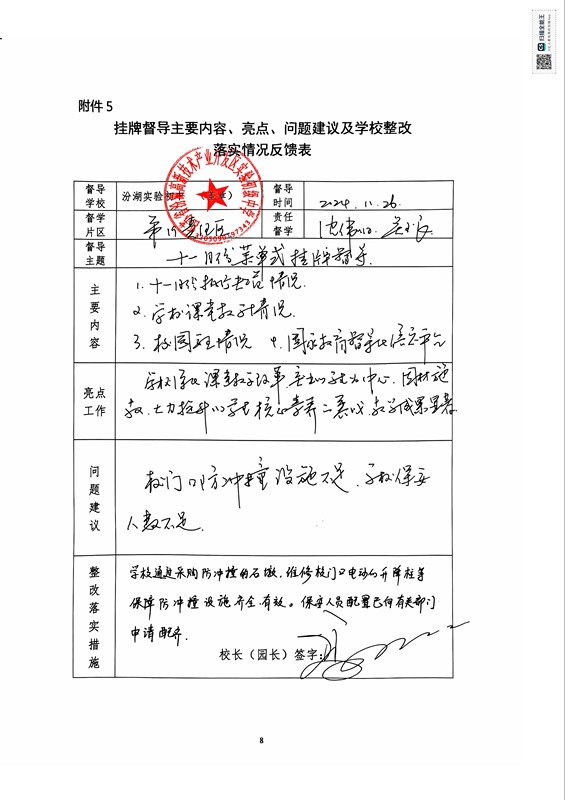 扫描全能王
附件 5
挂牌督导主要内容、亮点、问题建议及学校整改
落实情况反馈表
督导学校
汾湖实验初中（盖章）
督导时间
2024.11.26
督学片区
责任督学
督导主题
十一月份菜单式挂牌督导
主要内容
1. 十一月份 情况
2. 学校课堂教学情况
3. 校园 情况 4. 国家教育督导
亮点工作
学校 课堂教学改革 以学生为中心，因材施
教，大力提升 学生核心素养 教学成果显著
问题建议
校门口防冲撞设施不足，学校保安
人数不足
整改落实措施
学校通过采购防冲撞的石墩，维修校门口电动升降柱等
保障防冲撞设施齐全、有效。保安人员配置已向有关部门
申请配齐
校长（园长）签字：
8